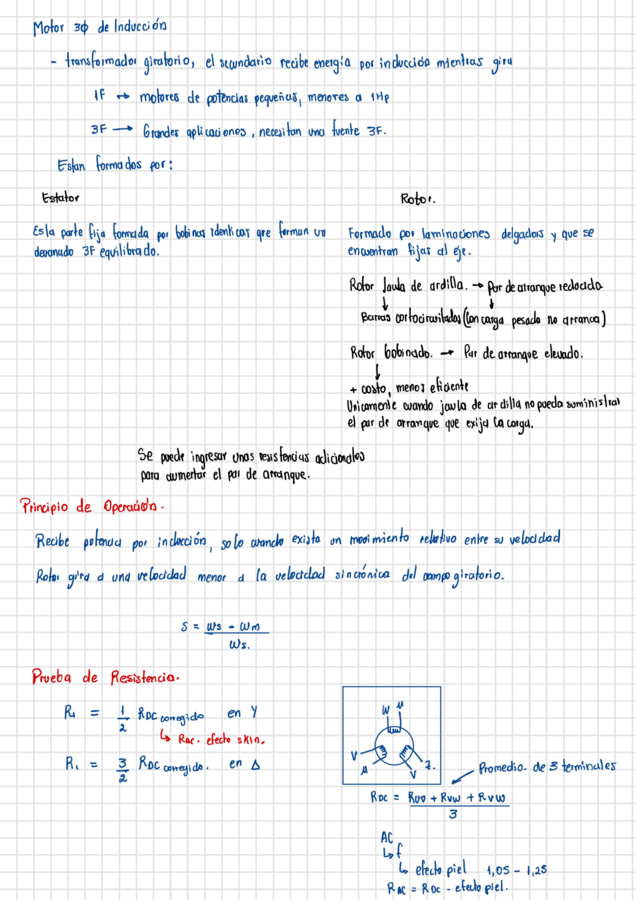 Motor 3ϕ de Inducción
- transformador giratorio, el secundario recibe energía por inducción mientras gira
1F ↔ motores de potencias pequeñas, menores a 1Hp
3F → Grandes aplicaciones, necesitan una fuente 3F.
Estan formados por:
Estator
Es la parte fija formada por bobinas identicas que forman un
devanado 3F equilibrado.
Rotor.
Formado por laminaciones delgadas y que se
encuentran fijas al eje.
Rotor Jaula de ardilla. → Par de arranque reducido
↓ ↓
Barras cortocircuitadas (Con carga pesada no arranca)
Rotor bobinado. → Par de arranque elevado.
↓
+ costo, menos eficiente
Unicamente cuando jaula de ardilla no pueda suministrar
el par de arranque que exija la carga.
Se puede ingresar unas resistencias adicionales
para aumentar el par de arranque.
Principio de Operación.
Recibe potencia por inducción, solo cuando exista un movimiento relativo entre su velocidad
Rotor gira a una velocidad menor a la velocidad sincrónica del campo giratorio.
S = ωs - ωm
ωs.
Prueba de Resistencia.
R₁ = 1/2 RDC corregido en Y
↳ RAC. efecto skin.
R₁ = 3/2 RDC corregido. en Δ
W μ
V
μ V z.
Promedio. de 3 terminales
RDC = Ruv + Rvw + Rvw
3
AC
↳ f
↳ efecto piel 1,05 - 1,25
RAC = RDC - efecto piel.